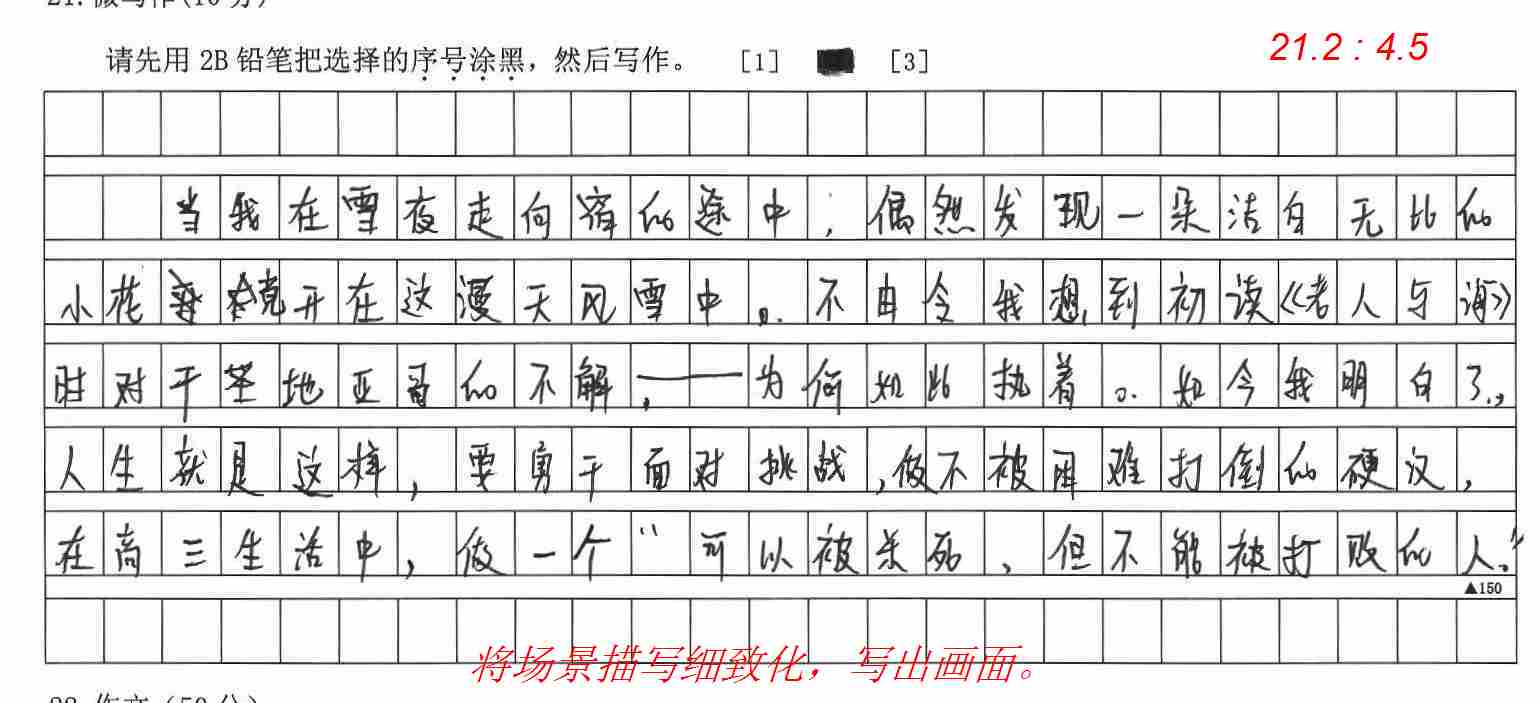 21.微写作(10分)
请先用 2B 铅笔把选择的序号涂黑，然后写作。 [1] [3]
21.2 : 4.5
当我在雪夜走向宿的途中，偶然发现一朵洁白无比的
小花 竞开在这漫天风雪中。不由令我想到初读《老人与海》
时对于圣地亚哥的不解，——为何如此执着。如今我明白了，
人生就是这样，要勇于面对挑战，做不被困难打倒的硬汉，
在高三生活中，做一个“可以被杀死、但不能被打败的人。”
▲150
将场景描写细致化，写出画面。
22.作文（50分）